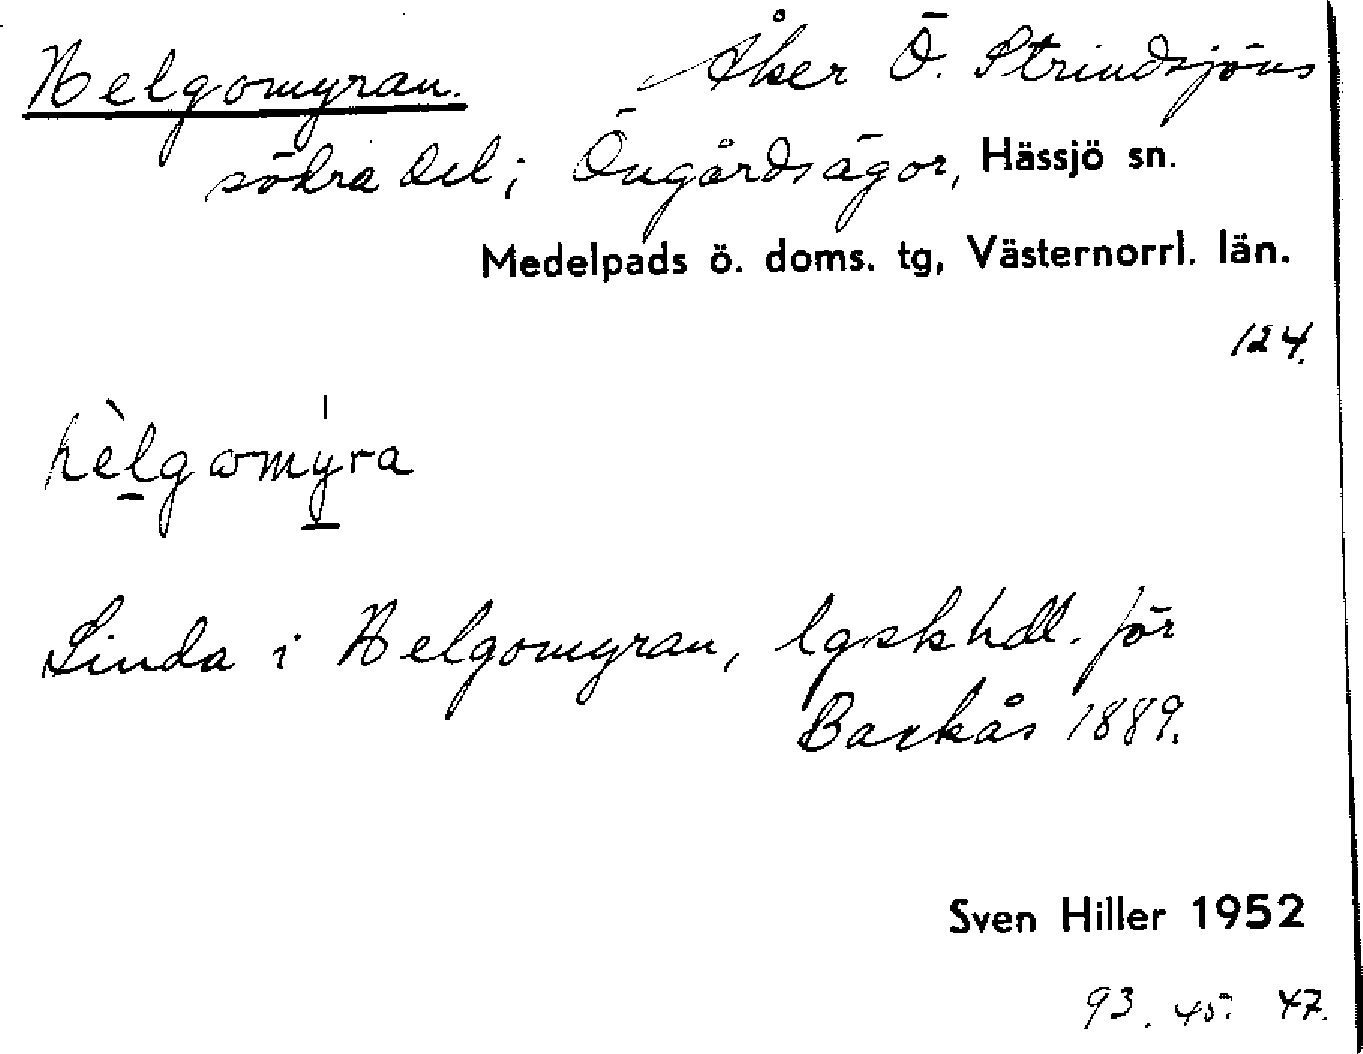 Helgomyran. Åker Ö. Strindsjöns
södra del; Öngårdsägor, Hässjö sn.
Medelpads ö. doms. tg, Västernorrl. län.
124.
hèlgωmy̍ra
Linda i Helgomyran, lgskhdl. för
Backås 1889.
Sven Hiller 1952
93. 45. 47.